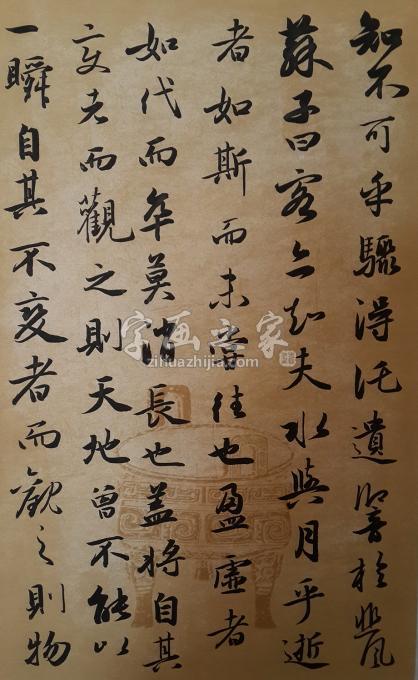 知不可乎驟得託遺響於悲風
蘇子曰客亦知夫水與月乎逝
者如斯而未嘗往也盈虛者
如代而卒莫消長也蓋將自其
變者而觀之則天地曾不能以
一瞬自其不變者而觀之則物
字画之家
zihuazhijia.com